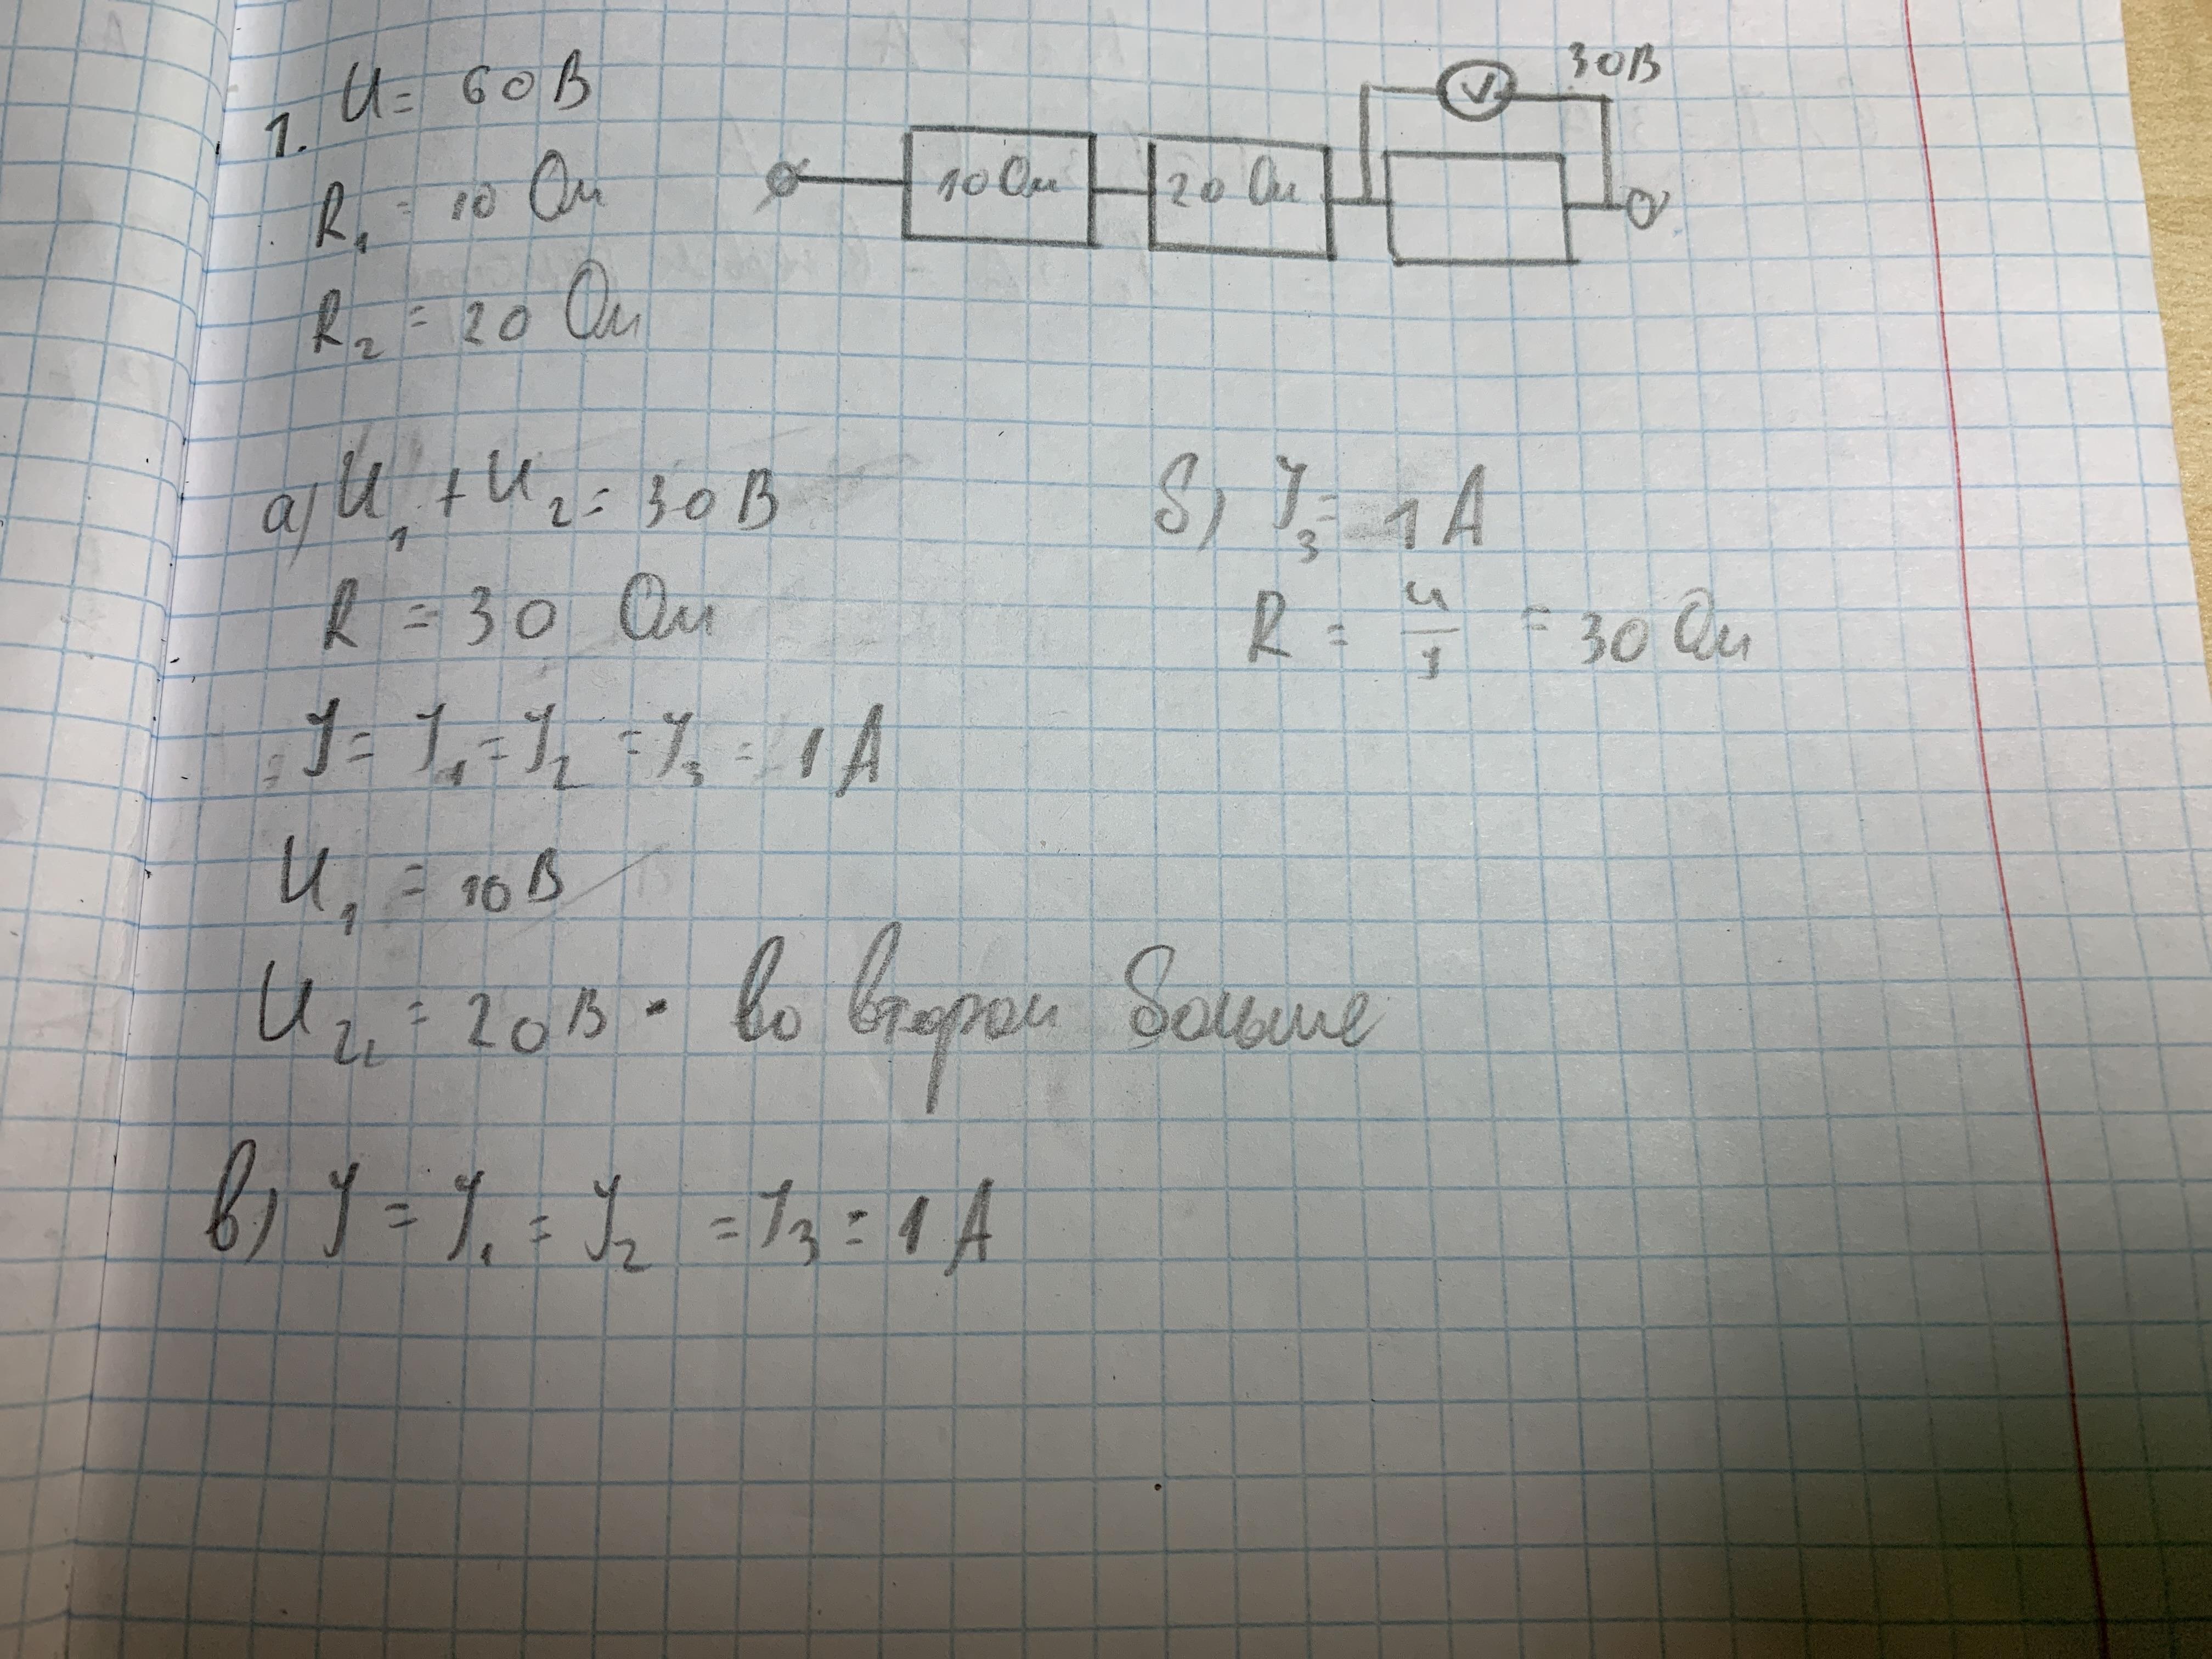 1. U = 60 В
R₁ = 10 Ом
R₂ = 20 Ом
10 Ом 20 Ом V 30В
а) U₁ + U₂ = 30 В
R = 30 Ом
= J = J₁ = J₂ = J₃ = 1 А
U₁ = 10 В
U₂ = 20 В · во втором больше
б) J₃ = 1 А
R = U/J = 30 Ом
в) J = J₁ = J₂ = J₃ = 1 А